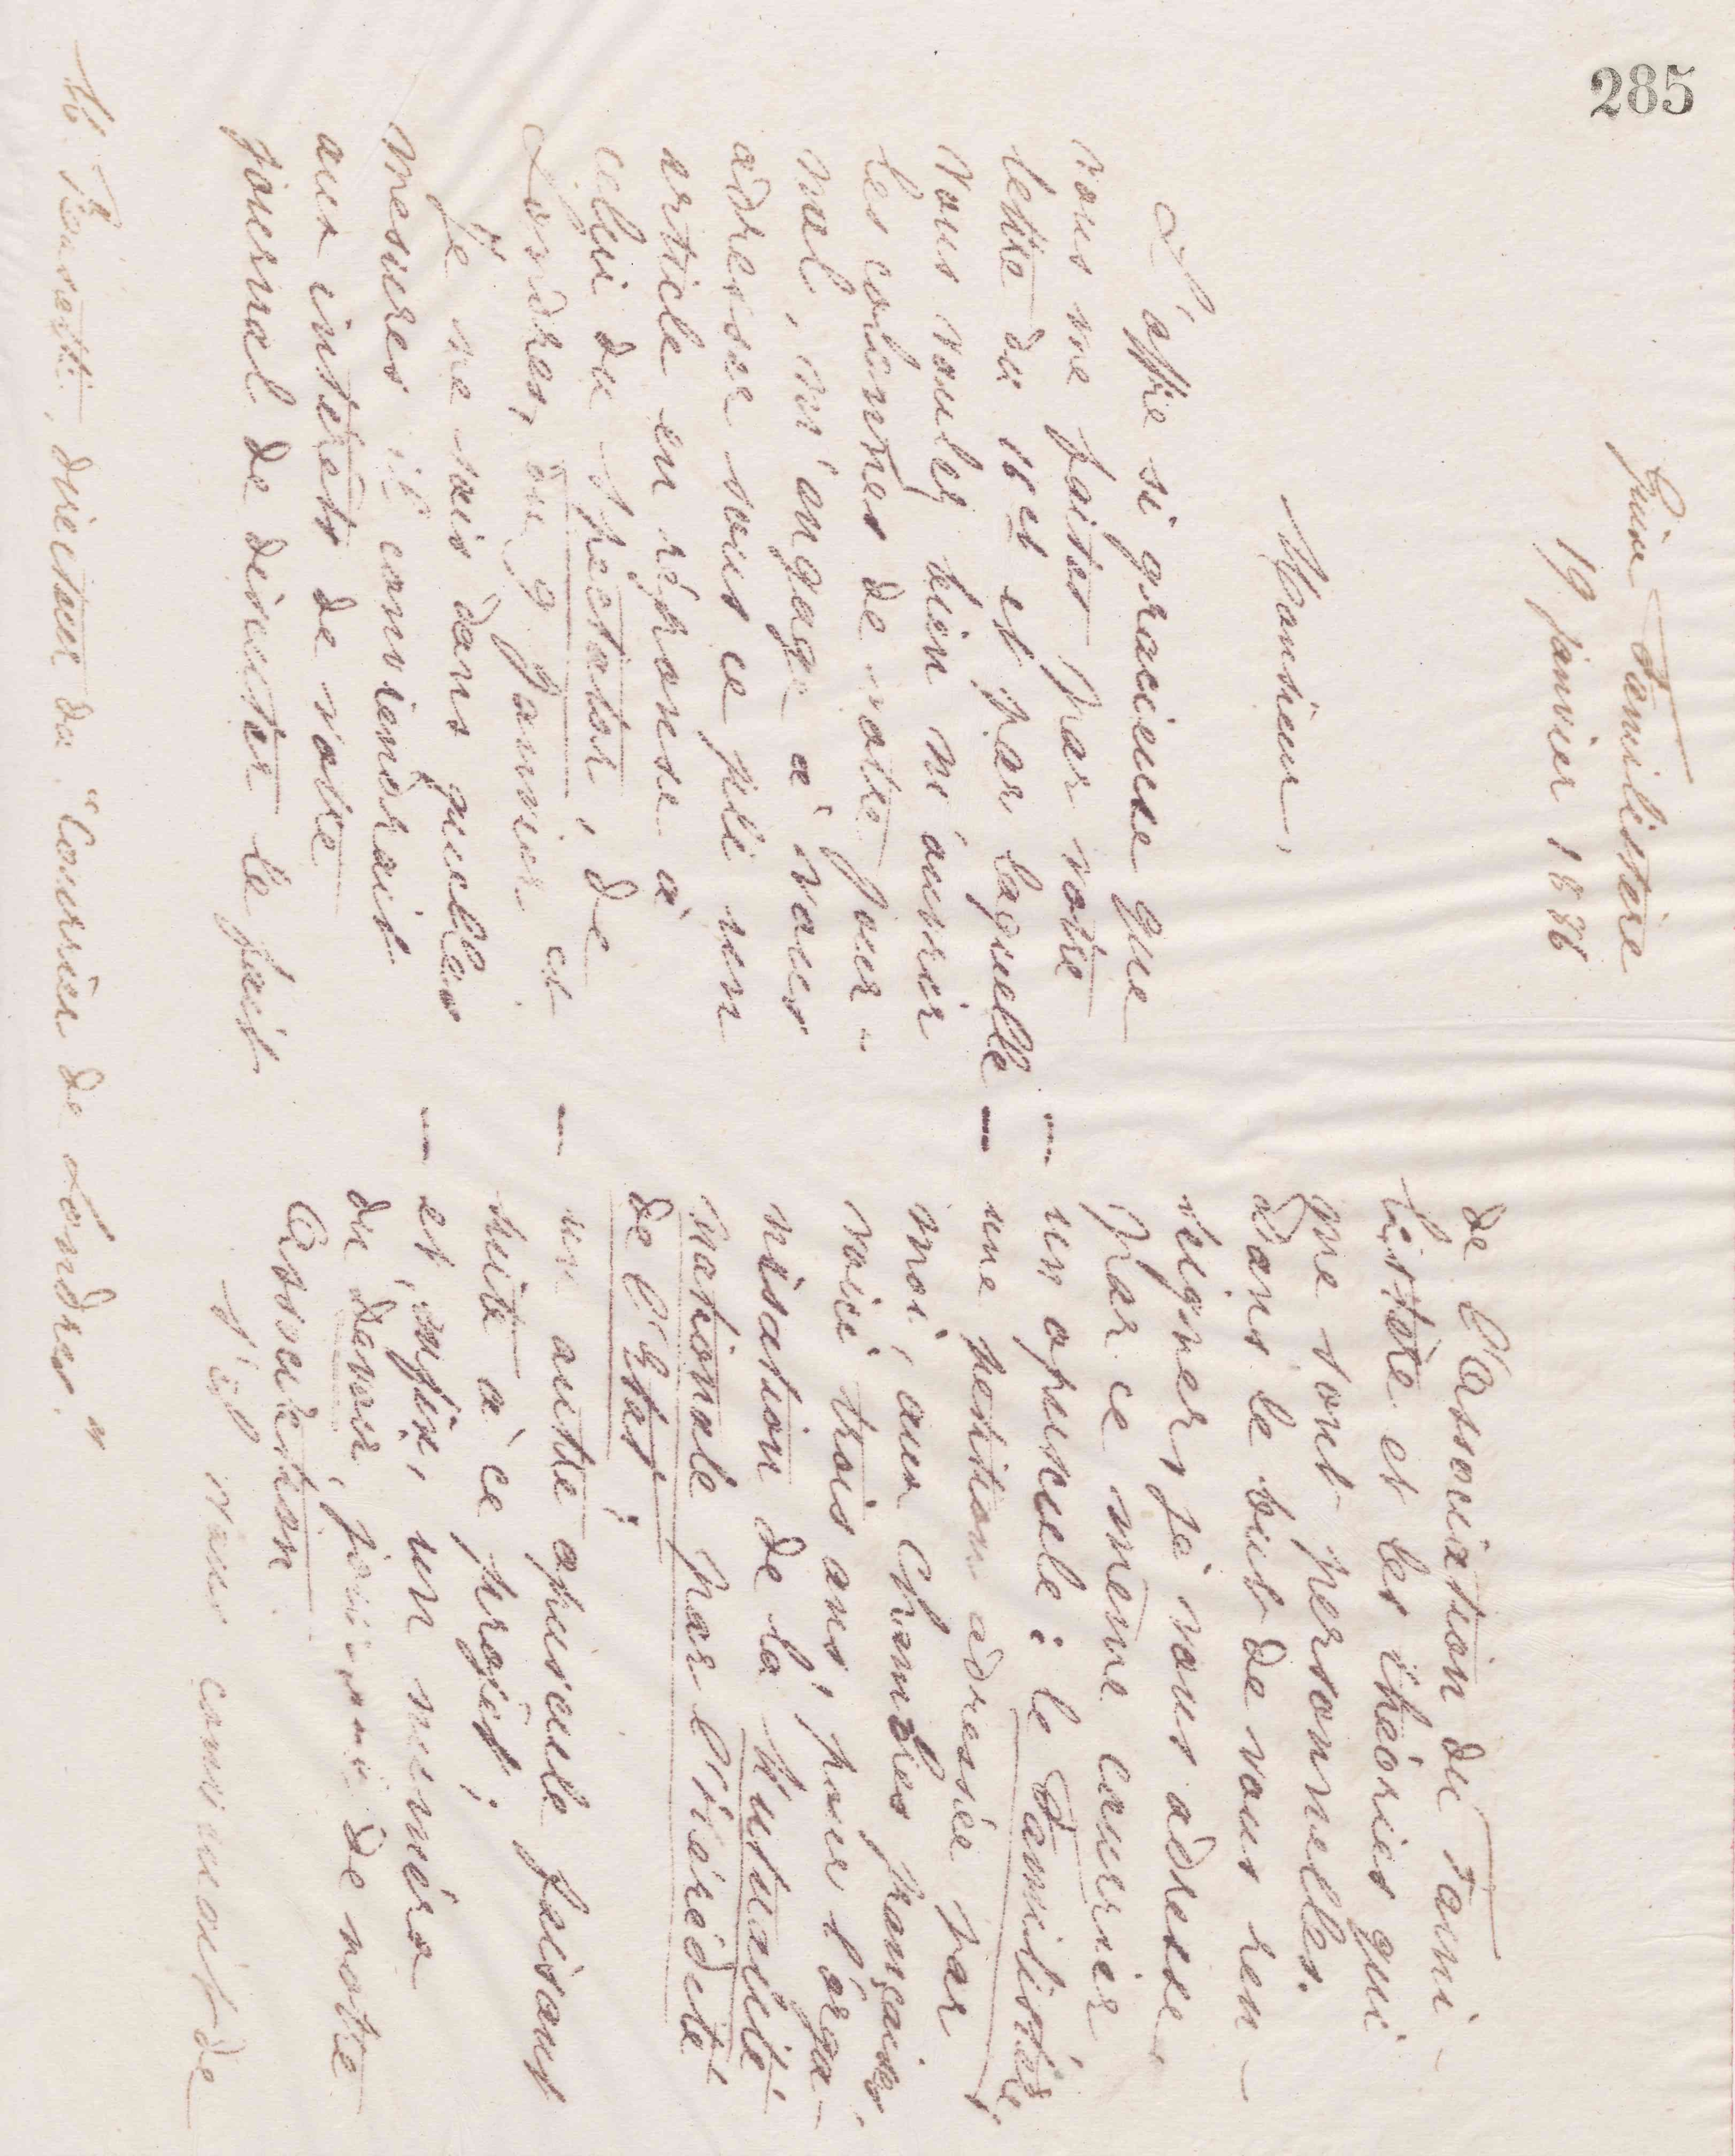 285
Guise Familistère
19 janvier 1886
Monsieur,
L'offre si gracieuse que
vous me faites par votre
lettre du 16 ct et par laquelle
vous voulez bien m'ouvrir
les colonnes de votre jour-
nal, m'engage à vous
adresser sous ce pli un
article en réponse à
celui du Spectator, de
Londres, du 9 Janvier ct
Je ne sais dans quelles
mesures il conviendrait
aux intérêts de votre
journal de discuter le fait
M. directeur du "Courrier de Londres."
de l'Association du Fami-
listère et les théories qui
me sont personnelles.
Dans le but de vous ren-
seigner je vous adresse
par ce même courrier
— un opuscule: le Familistère;
— une pétition adressée par
moi, aux Chambres françaises,
voici trois ans, pour l'orga-
nisation de la Mutualité
nationale par l'Hérédité
de l'Etat;
— un autre opuscule faisant
suite à ce projet;
— et, enfin, un numéro
du devoir, journal de notre
Association.
S'il vous convenait de